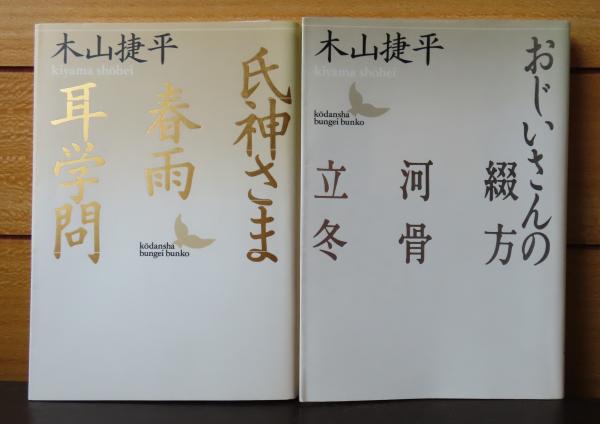 木山捷平
kiyama shōhei
氏神さま
春雨
耳学問
kōdansha
bungei bunko
木山捷平
kiyama shōhei
kōdansha
bungei bunko
おじいさんの
綴方
河骨
立冬